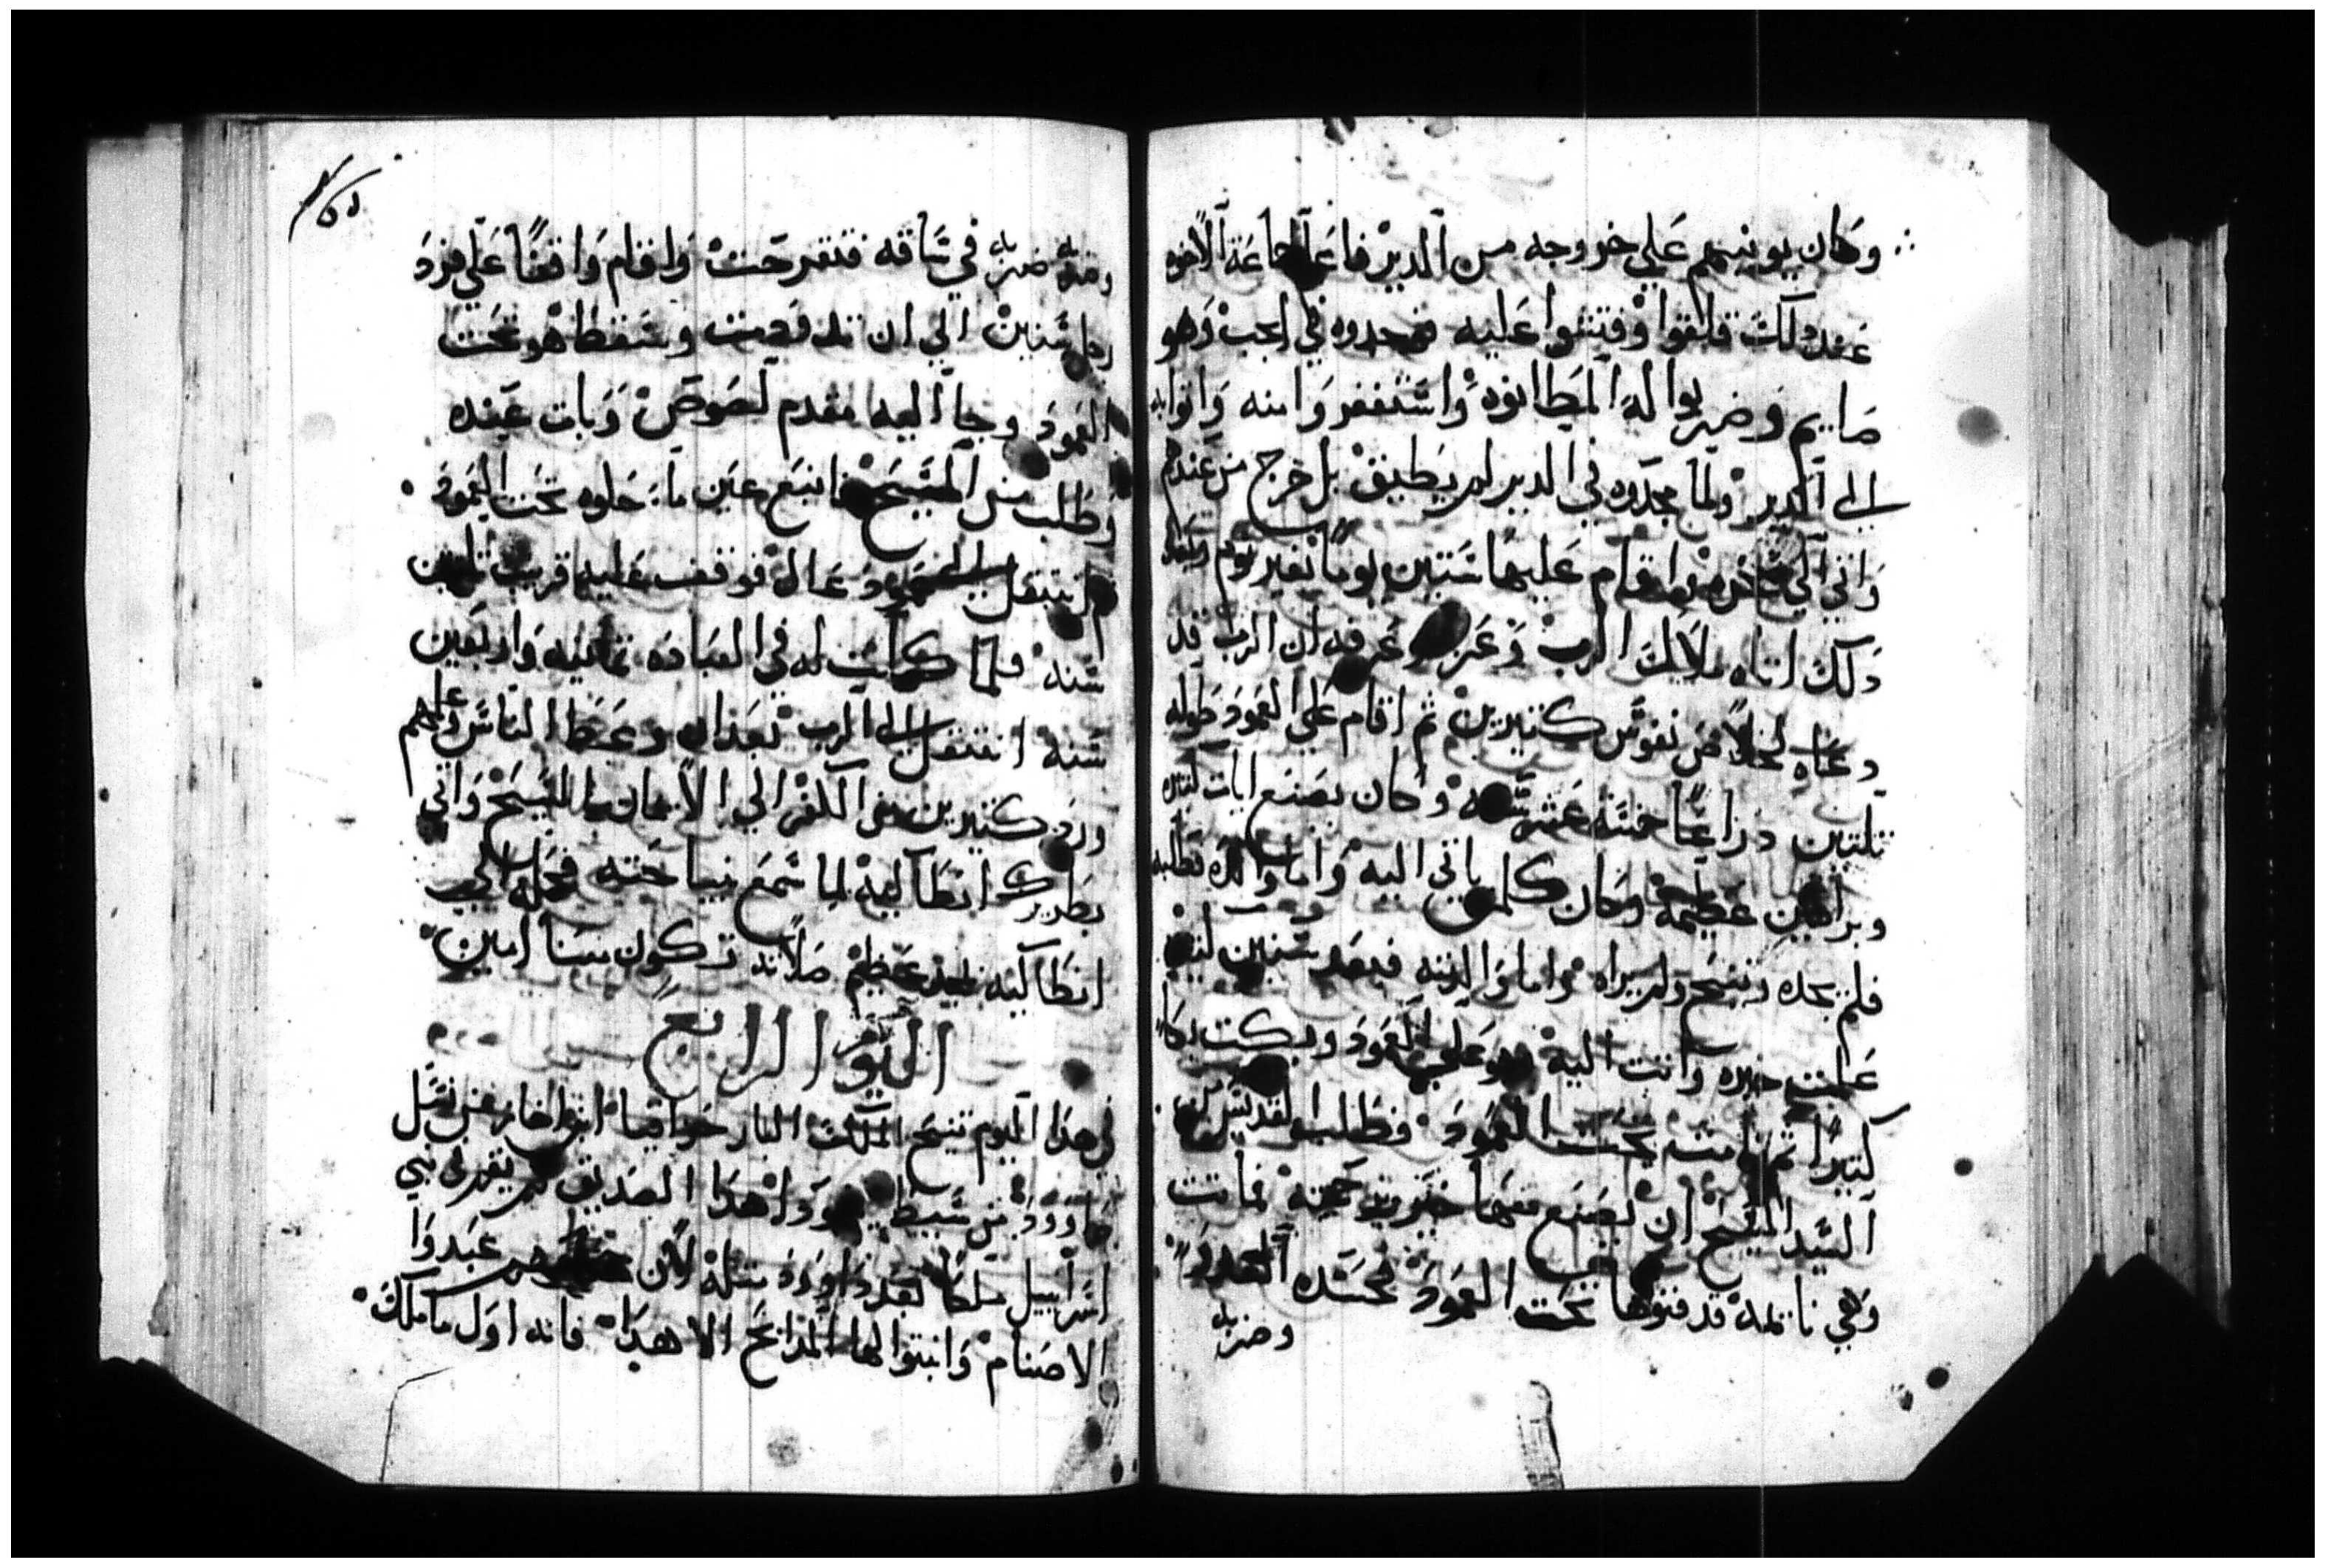 وكان يوبنهم علي خروجه من الدير فاعلا جماعة الاخوه
عند دلك قلقوا وفتشوا عليه فوجدوه في الجب وهو
صايم وضربوا له المطانوه واستغفروا منه واتوا به
الي الدير ولما مجدوه في الدير لم يطيق بل خرج من عندهم
واتي الي واقام عليها ستين يوما بغير نوم وبعد
دلك اتاه ملاك الرب وعزاه وعرفه ان الرب قد
دعاه لخلاص نفوس كتيرين ثم اقام علي العمود طوله
تلتين دراعا خمسة عشر سنه وكان يصنع ايات
وبراهين عظيمة وكان كلمن ياتي اليه واما والده فطلبه
فلم يجده وتنيح ولم يراه واما والدته فبعد سنين
علمت خبره واتت اليه وهو علي العمود وبكت بكا
كتيرا ثم نامت تحت العمود فطلب القديس من
السيد المسيح ان يصنع معها خير ورحمة فماتت
وهي نايمه فدفنوها تحت العمود فحسده العدو
وضربه
وضربه ضربه في ساقه فتقرحت واقام واقفا علي فرد
رجل سنين الي ان تدودت وسقط الدود تحت
العمود وجا اليه مقدم لصوص وبات عنده
وطلب من المسيح فانبع عين ما حلوه تحت العمود
انتقل الي عمود عال فوقف عليه قريب تلتين
سنه فلما كملت له في العباده تمانيه واربعين
سنه انتقل الي الرب بعد ان وعظ الناس وعلمهم
ورد كتيرين من الكفر الي الايمان بالمسيح واتي
بطريرك انطاكيه لما سمع بنياحته فحمله الي
انطاكيه بمجد عظيم صلاته تكون معنا امين
اليوم الرابع
في هذا اليوم تنيح الملك البار حزاقيا ابن اخاز من نسل
داوود من سبط يهودا هدا الصديق لم يقم في بني
اسراييل ملكا بعد داوود متله لان عبدوا
الاصنام وابنوا لها المدابح الا هدا فانه اول ما ملك